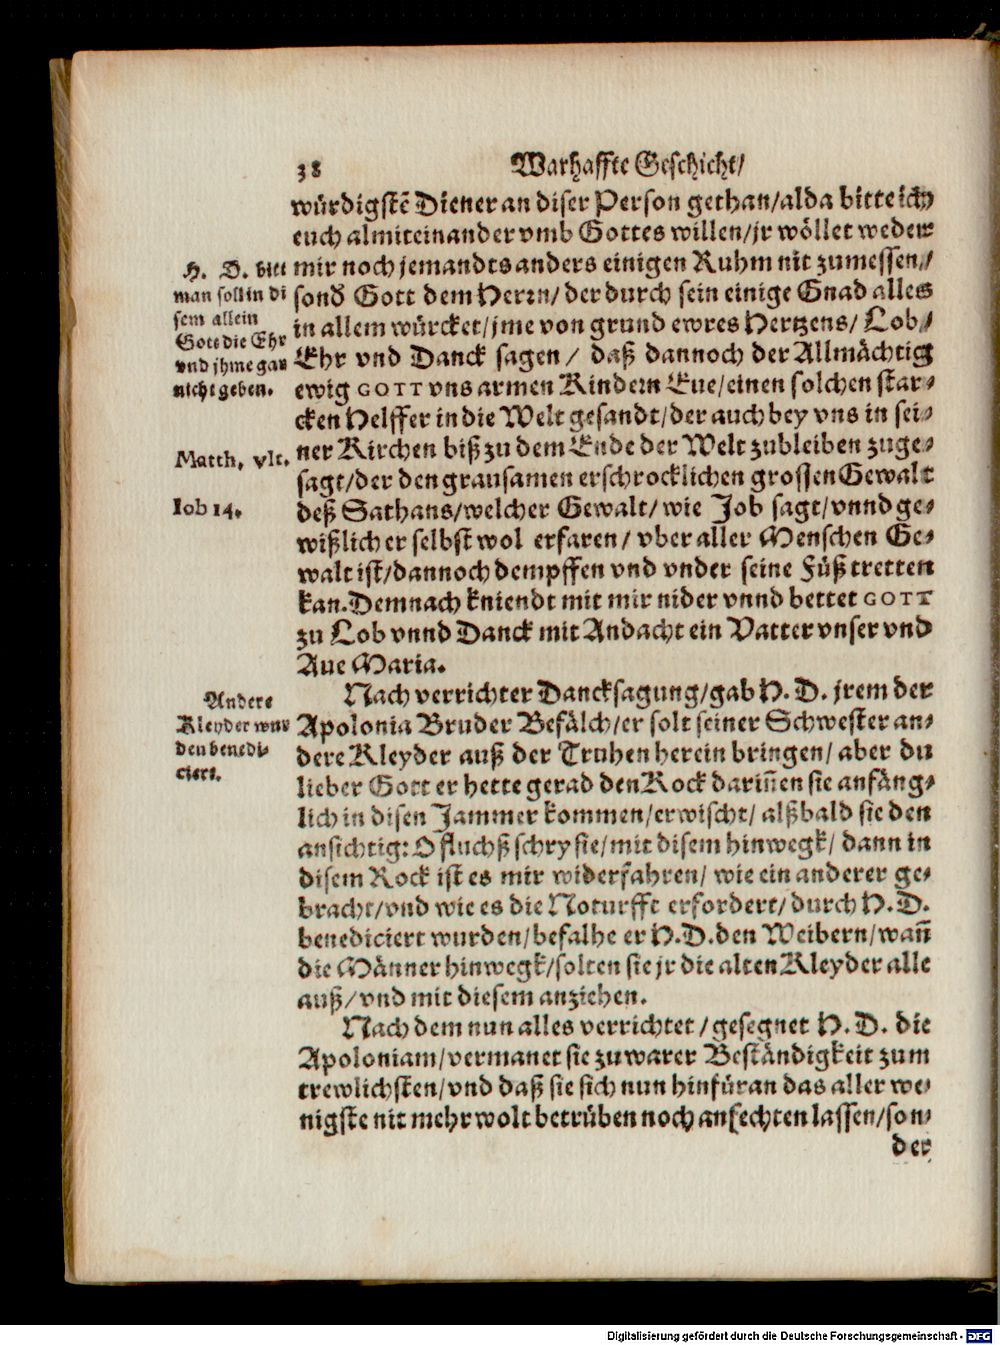 38 Warhaffte Geschicht/
würdigstẽ Diener an diser Person gethan/alda bitte ich
euch almiteinander vmb Gottes willen/jr wöllet weder
mir noch jemandts anders einigen Ruhm nit zumessen/
sonđ Gott dem Herrn/der durch sein einige Gnad alles
in allem würcket/jme von grund ewres Hertzens/ Lob/
Ehr vnd Danck sagen/ daß dannoch der Allmächtig
ewig GOTT vns armen Kindern Eue/einen solchen star-
cken Helffer in die Welt gesandt/der auch bey vns in sei-
ner Kirchen biß zu dem Ende der Welt zubleiben zuge-
sagt/der den grausamen erschrocklichen grossen Gewalt
deß Sathans/welcher Gewalt/ wie Job sagt/vnnd ge-
wißlich er selbst wol erfaren/ vber aller Menschen Ge-
walt ist/dannoch dempffen vnd vnder seine Füß tretten
kan. Demnach kniendt mit mir nider vnnd bettet GOTT
zu Lob vnnd Danck mit Andacht ein Vatter vnser vnd
Aue Maria.
Nach verrichter Dancksagung/gab H. D. jrem der
Apolonia Bruder Befälch/er solt seiner Schwester an-
dere Kleyder auß der Truhen herein bringen/ aber du
lieber Gott er hette gerad den Rock dariñen sie anfäng-
lich in disen Jammer kommen/erwischt/ alßbald sie den
ansichtig: O fluchß schry sie/mit disem hinwegk/ dann in
disem Rock ist es mir widerfahren/ wie ein anderer ge-
bracht/vnd wie es die Noturfft erfordert/durch H. D.
benediciert wurden/befalhe er H. D. den Weibern/wañ
die Männer hinwegk/solten sie jr die alten Kleyder alle
auß/vnd mit diesem anziehen.
Nach dem nun alles verrichtet/gesegnet H. D. die
Apoloniam/vermanet sie zu warer Beständigkeit zum
trewlichsten/vnd daß sie sich nun hinfüran das aller we-
nigste nit mehr wolt betrüben noch anfechten lassen/son-
der
H. D. bitt
man soll in di
sem allein
Gott die Ehr
vnd jhme gar
nicht geben.
Matth. vlt.
Iob 14.
Andere
Kleyder wur
den benedi-
ciert.
Digitalisierung gefördert durch die Deutsche Forschungsgemeinschaft - DFG